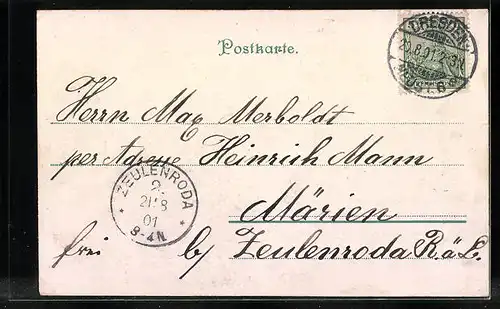 Postkarte.
DRESDEN
20.8.01
Herrn Max Merboldt
per Adresse Heinrich Mann
Märien
frei b/ Zeulenroda R. ä. L.
ZEULENRODA
21/8
01
8-9N.